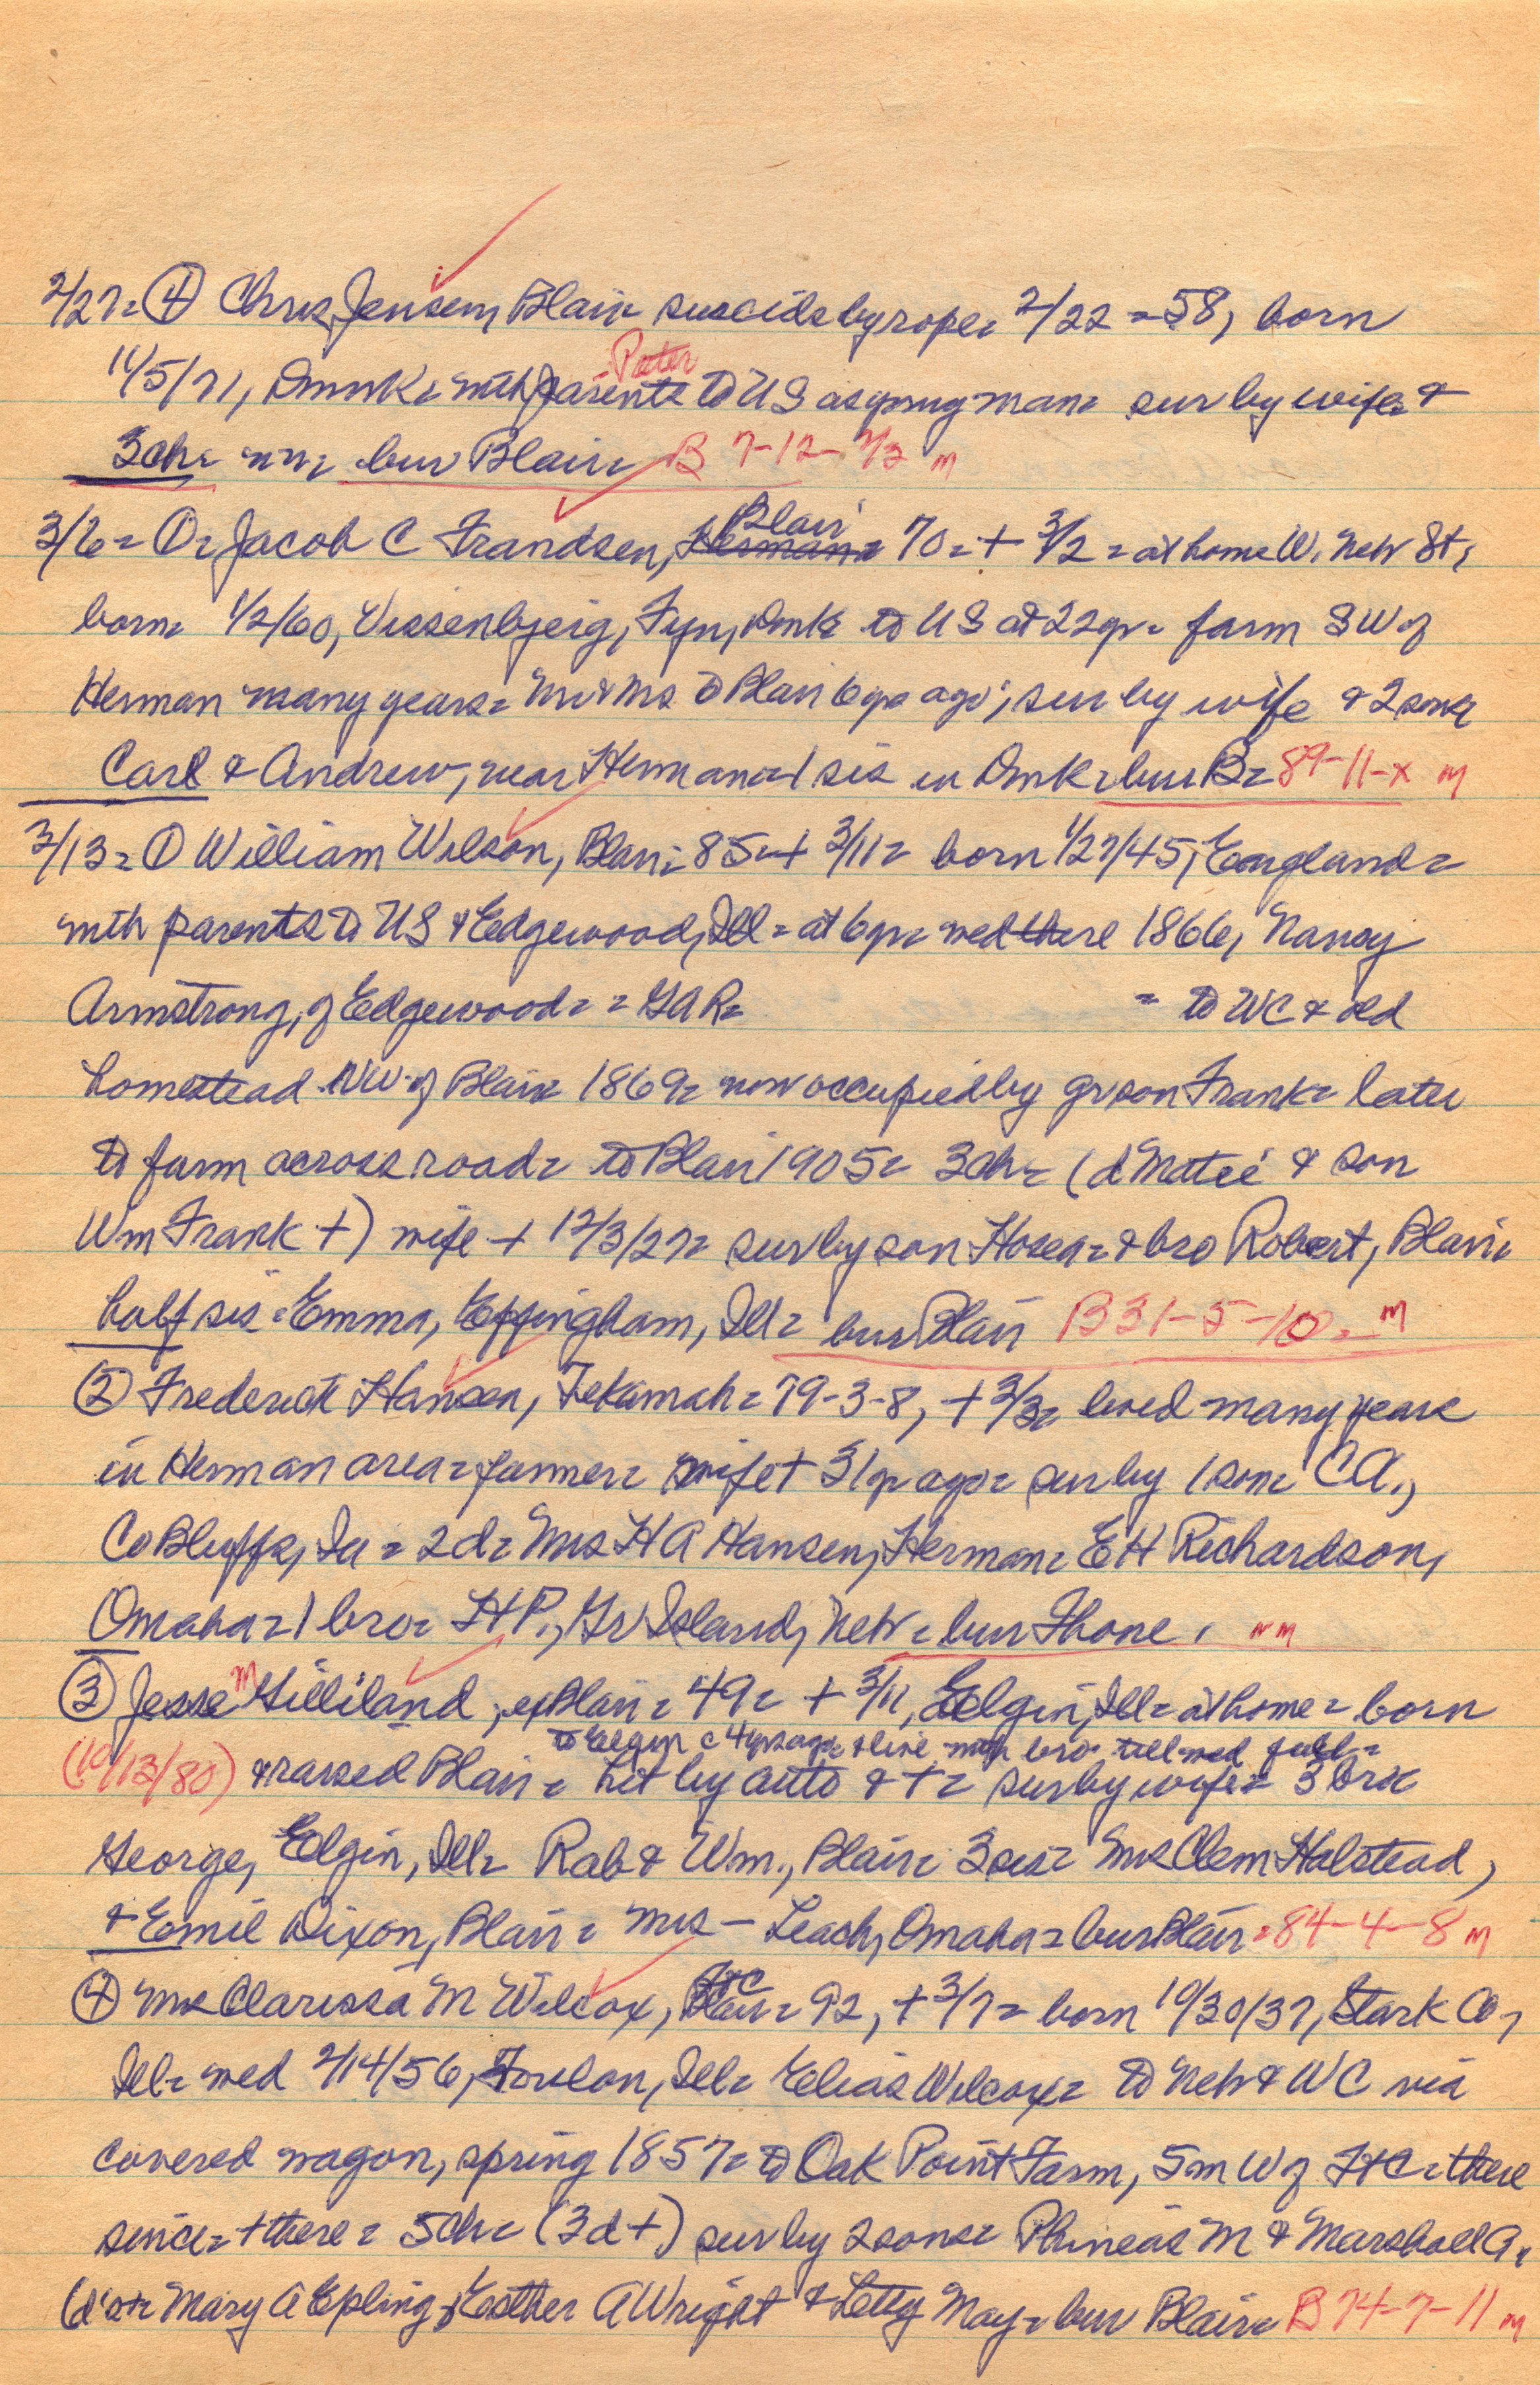 2/27= ④ Chris Jensen, Blair= suicide by rope= 2/22 = 58, born
Peter
11/5/71, Dnmk= with parents to US as young man= sur by wife= &
3ch= nn= bur Blair= B 7-12- m
3/6= ①= Jacob C Frandsen, Herman= Blair 70= + 3/2 = at home W. Neb St,
born= 1/2/60, Vissenbjerg, Fyn, Dmk= to US at 22yr= farm SW of
Herman many years= Mr & Mrs to Blair 6yr ago; sur by wife & 2 sons
Carl & Andrew, near Herman= 1 sis in Dmk= bur B= 89-11-x m
3/13= ① William Wilson, Blair= 85= + 3/11= born 1/27/45, England=
with parents to US & Edgewood, Ill= at 6yr= wed there 1866, Nancy
Armstrong, of Edgewood= = GAR= = to WC & old
homestead NW of Blair 1869= now occupied by grson Frank= later
to farm across road= to Blair 1905= 3ch= (d Matie & son
Wm Frank +) wife + 12/3/27= sur by son Hosea= & bro Robert, Blair=
half sis= Emma, Effingham, Ill= bur Blair B31-5-10= m
② Frederick Hansen, Tekamah= 79-3-8, + 3/3= lived many years
in Herman area= farmer= wife + 31yr ago= sur by 1 son= CA.,
Co Bluffs, Ia = 2d= Mrs HA Hansen, Herman= EH Richardson,
Omaha= 1 bro= HP., Gr Island, Neb= bur Fhone. nm
③ Jesse M Gilliland, exBlair= 49= + 3/11, Elgin, Ill= at home= born
to Elgin c 4yrs ago & live with bro till wed fall=
(10/13/80) & raised Blair= hit by auto & += sur by wife= 3 bro=
George, Elgin, Ill= Rob & Wm., Blair= 3 sis= Mrs Clem Halstead,
& Emil Dixon, Blair= Mrs - Leach, Omaha= bur Blair= 84-4-8 m
④ Mrs Clarissa M Wilcox, Blair= FtC 92, + 3/7= born 10/30/37, Stark Co,
Ill= wed 2/14/56, Toulon, Ill= Elias Wilcox= to Neb & WC via
covered wagon, spring 1857= to Oak Point Farm, 5m W of FtC= there
since= + there= 5ch= (3d+) sur by 2 sons= Phineas M & Marshall A=
(d's += Mary A Epling, Esther A Wright & Letty May= bur Blair= B74-7-11 m